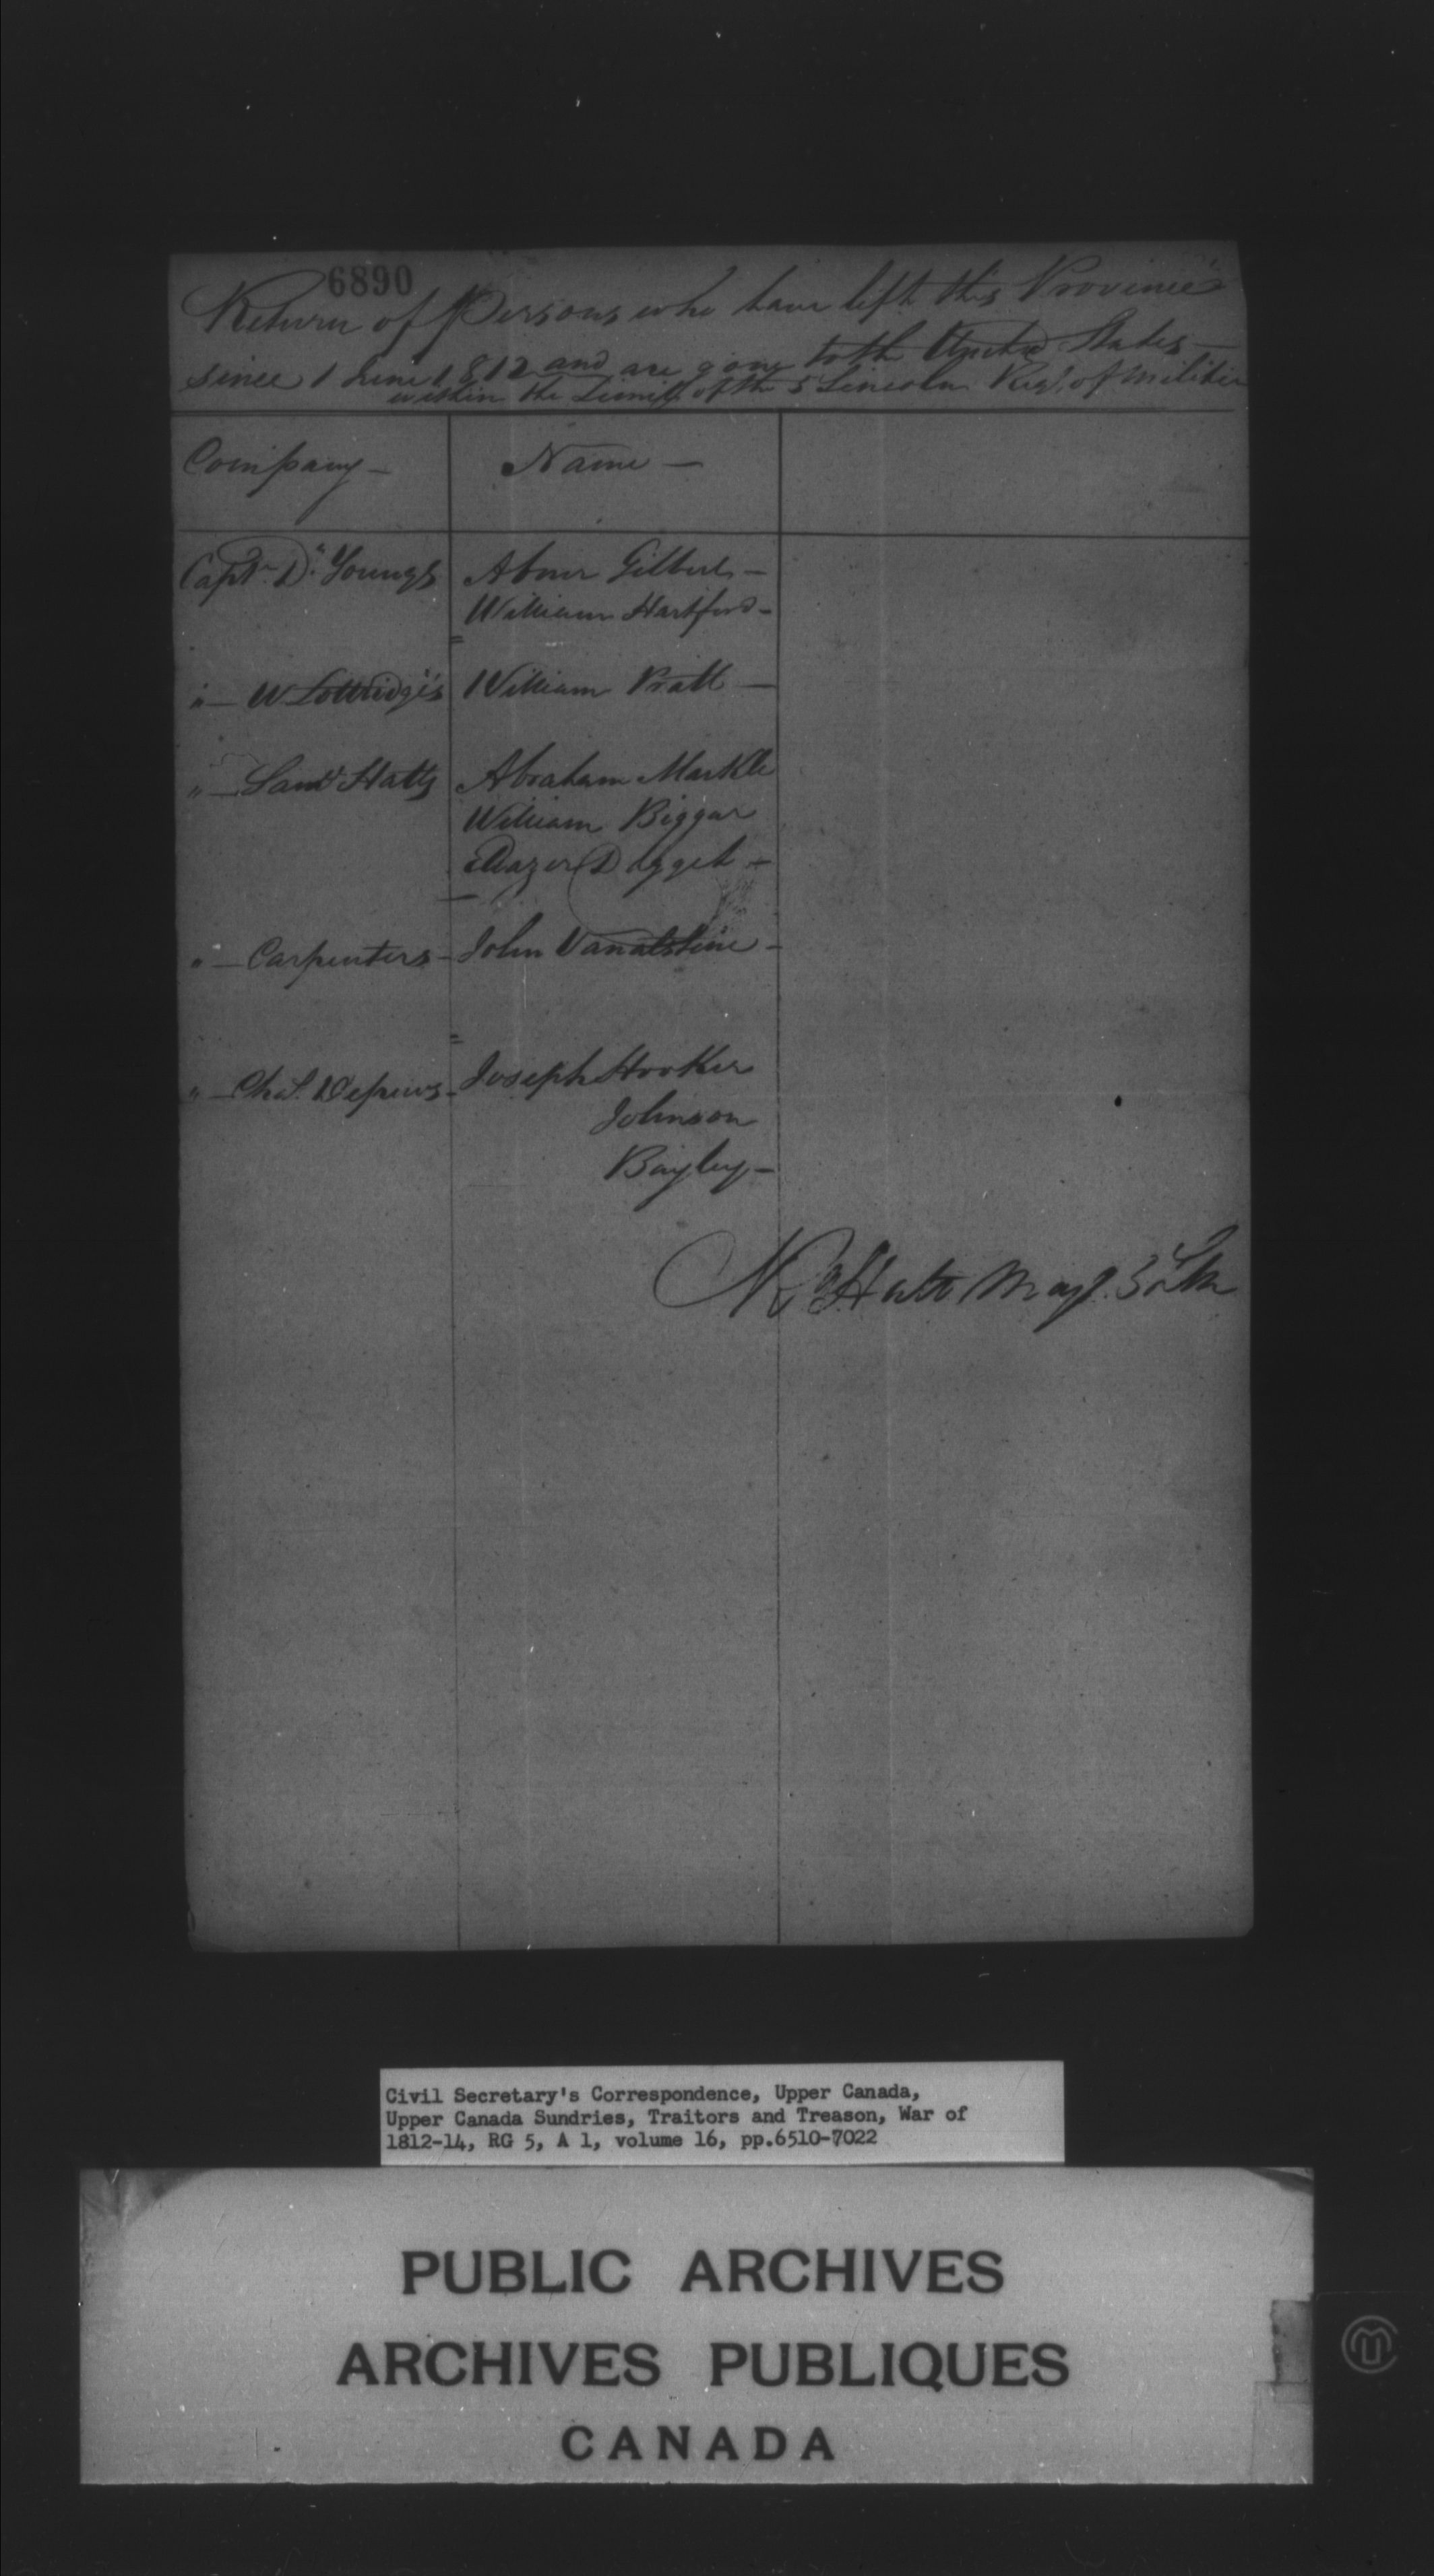 6890
Return of Persons who have left this Province
since 1 June 1812 and are gone to the United States —
within the Limits of the 5 Lincoln Reg.t of Militia
Company — Name —
Capt.n D. Youngs Abner Gilbert —
William Hartford —
" — W Lottridge's William Pratt —
" — Sam.l Hatts Abraham Markle
William Biggar
Eleazer Dagget —
" — Carpenters — John Vanalstine —
" — Cha.s Depews — Joseph Hooker
Johnson
Bayley —
Hatt Maj.r 5 Lin
Civil Secretary's Correspondence, Upper Canada,
Upper Canada Sundries, Traitors and Treason, War of
1812-14, RG 5, A 1, volume 16, pp.6510-7022
PUBLIC ARCHIVES
ARCHIVES PUBLIQUES
CANADA